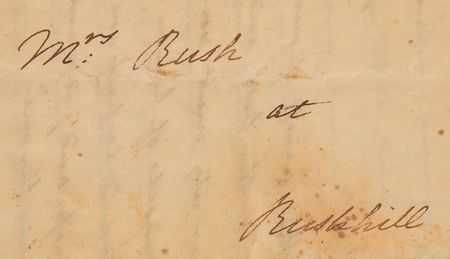 Mrs: Rush
at
Rushhill